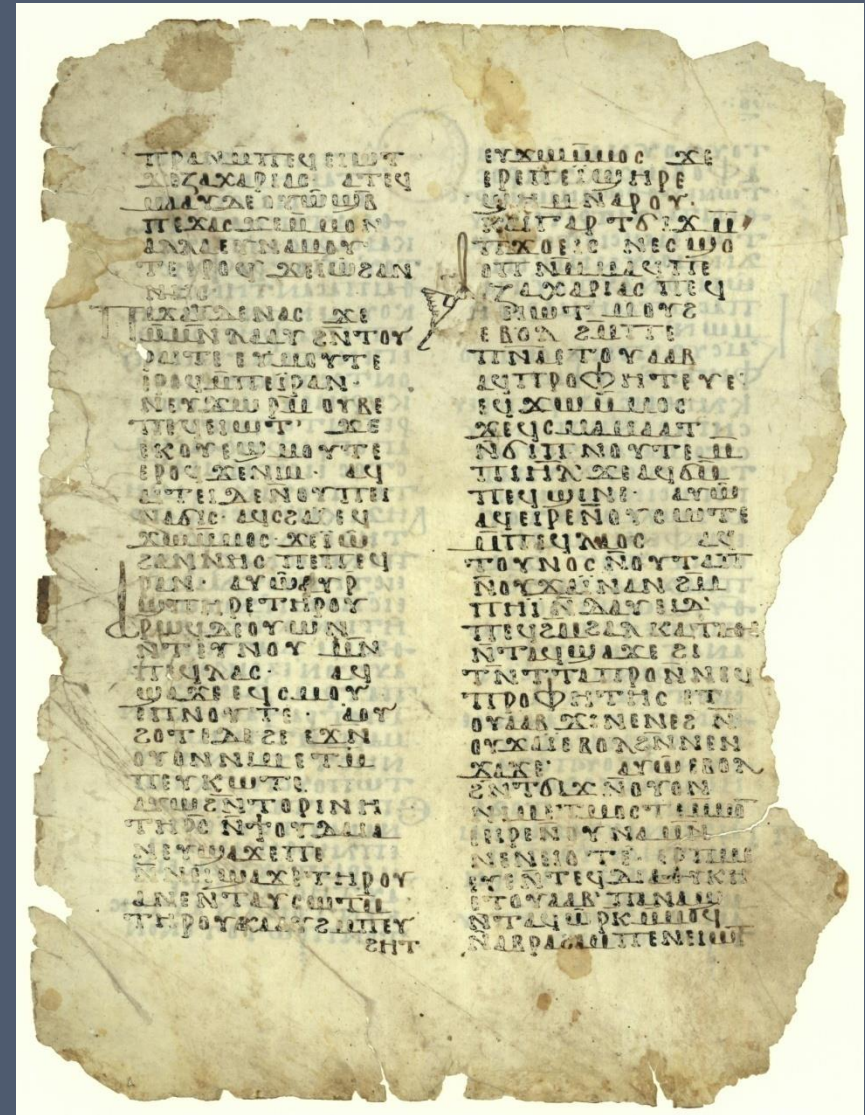 ⲡⲣⲁⲛⲙ̄ⲡⲉϥⲉⲓⲱⲧ
ϫⲉⲍⲁⲭⲁⲣⲓⲁⲥ ⲁⲧⲉϥ
ⲙⲁⲁⲩⲇⲉⲟⲩⲱϣⲃ̄
ⲡⲉϫⲁⲥϫⲉⲙ̄ⲙⲟⲛ
ⲁⲗⲗⲁⲉⲩⲛⲁⲙⲟⲩ
ⲧⲉⲉⲣⲟϥ ϫⲉⲓⲱϩⲁⲛ
ⲛⲏⲥ
ⲡⲉϫⲁⲩⲇⲉⲛⲁⲥ ϫⲉ
ⲙ̄ⲙⲛ̄ⲗⲁⲁⲩ ϩⲛ̄ⲧⲟⲩ
ⲣⲁⲓⲧⲉ ⲉⲩⲙⲟⲩⲧⲉ
ⲉⲣⲟϥⲙ̄ⲡⲉⲓⲣⲁⲛ·
ⲛⲉⲩϫⲱⲣⲙ̄ ⲟⲩⲃⲉ
ⲡⲉϥⲉⲓⲱⲧ· ϫⲉ
ⲉⲕⲟⲩⲉϣⲙⲟⲩⲧⲉ
ⲉⲣⲟϥ ϫⲉⲛⲓⲙ· ⲁϥ
ⲁⲓⲧⲉⲓⲇⲉⲛⲟⲩⲡⲓ
ⲛⲁϭⲓⲥ· ⲁϥⲥϩⲁⲓⲉϥ
ϫⲱⲙ̄ⲙⲟⲥ· ϫⲉⲓⲱ
ϩⲁⲛⲛⲏⲥ ⲡⲉⲡⲉϥ
ⲣⲁⲛ· ⲁⲩⲱⲁⲩⲣ̄
ϣⲡⲏⲣⲉⲧⲏⲣⲟⲩ
ⲣⲱϥⲇⲉⲟⲩⲱⲛ
ⲛ̄ⲧⲉⲩⲛⲟⲩ ⲙⲛ̄
ⲡⲉϥⲗⲁⲥ· ⲁϥ
ϣⲁϫⲉⲉϥⲥⲙⲟⲩ
ⲉⲡⲛⲟⲩⲧⲉ· ⲁⲟⲩ
ϩⲟⲧⲉⲇⲉϩⲉ ⲉϫⲛ̄
ⲟⲩⲟⲛⲛⲓⲙⲉⲧⲙ̄
ⲡⲉⲩⲕⲱⲧⲉ
ⲁⲩⲱϩⲛ̄ⲧⲟⲣⲓⲛⲏ
ⲧⲏⲣⲥ̄ ⲛ̄ϯⲟⲩⲇⲁⲓⲁ
ⲛⲉⲩϣⲁϫⲉⲡⲉ
ⲛ̄ⲛⲉⲓϣⲁϫⲉⲧⲏⲣⲟⲩ
ⲁⲛⲉⲛⲧⲁⲩⲥⲱⲧⲙ̄
ⲧⲏⲣⲟⲩⲕⲁⲁⲩϩⲙ̄ⲡⲉⲩ
ϩⲏⲧ
ⲉⲩϫⲱⲙ̄ⲙⲟⲥ ϫⲉ
ⲉⲣⲉⲡⲉⲓϣⲏⲣⲉ
ϣⲏⲙⲛⲁⲣⲟⲩ·
ⲕⲁⲓⲅⲁⲣ ⲧϭⲓϫⲙ̄
ⲡϫⲟⲉⲓⲥ ⲛⲉⲥϣⲟ
ⲟⲡⲛⲙ̄ⲙⲁϥⲡⲉ
ⲍⲁⲭⲁⲣⲓⲁⲥ ⲡⲉϥ
ⲉⲓⲱⲧ ⲙⲟⲩϩ
ⲉⲃⲟⲗ ϩⲙ̄ⲡⲉ
ⲡⲛ̄ⲁⲉⲧⲟⲩⲁⲁⲃ
ⲁϥⲡⲣⲟⲫⲏⲧⲉⲩⲉ
ⲉϥϫⲱⲙ̄ⲙⲟⲥ
ϫⲉϥⲥⲙⲁⲙⲁⲁⲧ
ⲛ̄ϭⲓⲡⲛⲟⲩⲧⲉⲙ̄
ⲡⲓⲏ̄ⲗ ϫⲉⲁϥϭⲙ̄
ⲡⲉϥϣⲓⲛⲉ· ⲁⲩⲱ
ⲁϥⲉⲓⲣⲉⲛ̄ⲟⲩⲥⲱⲧⲉ
ⲙ̄ⲡⲉϥⲗⲁⲟⲥ ⲁϥ
ⲧⲟⲩⲛⲟⲥⲛ̄ⲟⲩⲧⲁⲡ
ⲛ̄ⲟⲩϫⲁⲓⲛⲁⲛ ϩⲙ̄
ⲡⲏⲓⲛ̄ⲇⲁⲩⲉⲓⲇ
ⲡⲉϥϩⲙ̄ϩⲁⲗ ⲕⲁⲧⲁⲑⲉ
ⲛ̄ⲧⲁϥϣⲁϫⲉ ϩⲓ
ⲧⲛ̄ⲧⲧⲁⲡⲣⲟⲛ̄ⲛⲉϥ
ⲡⲣⲟⲫⲏⲧⲏⲥ ⲉⲧ
ⲟⲩⲁⲁⲃ ϫⲓⲛⲉⲛⲉϩ ⲛ̄
ⲟⲩϫⲁⲓⲉⲃⲟⲗϩⲛ̄ⲛⲉⲛ
ϫⲁϫⲉ· ⲁⲩⲱⲉⲃⲟⲗ
ϩⲛ̄ⲧϭⲓϫⲛ̄ⲟⲩⲟⲛ
ⲛⲓⲙⲉⲧⲙⲟⲥⲧⲉⲙ̄ⲙⲟ
ⲉⲓⲣⲉⲛ̄ⲟⲩⲛⲁⲙⲛ̄
ⲛⲉⲛⲉⲓⲟⲧⲉ· ⲉⲣⲡⲙⲉ
ⲉⲩⲉⲛ̄ⲧⲉϥⲇⲓⲁⲑⲩⲕⲏ
ⲉⲧⲟⲩⲁⲁⲃ ⲡⲁⲛⲁϣ
ⲛ̄ⲧⲁϥⲱⲣⲕⲙ̄ⲙⲟϥ
ⲛ̄ⲁⲃⲣⲁϩⲁⲙⲡⲉⲛⲉⲓⲱⲧ